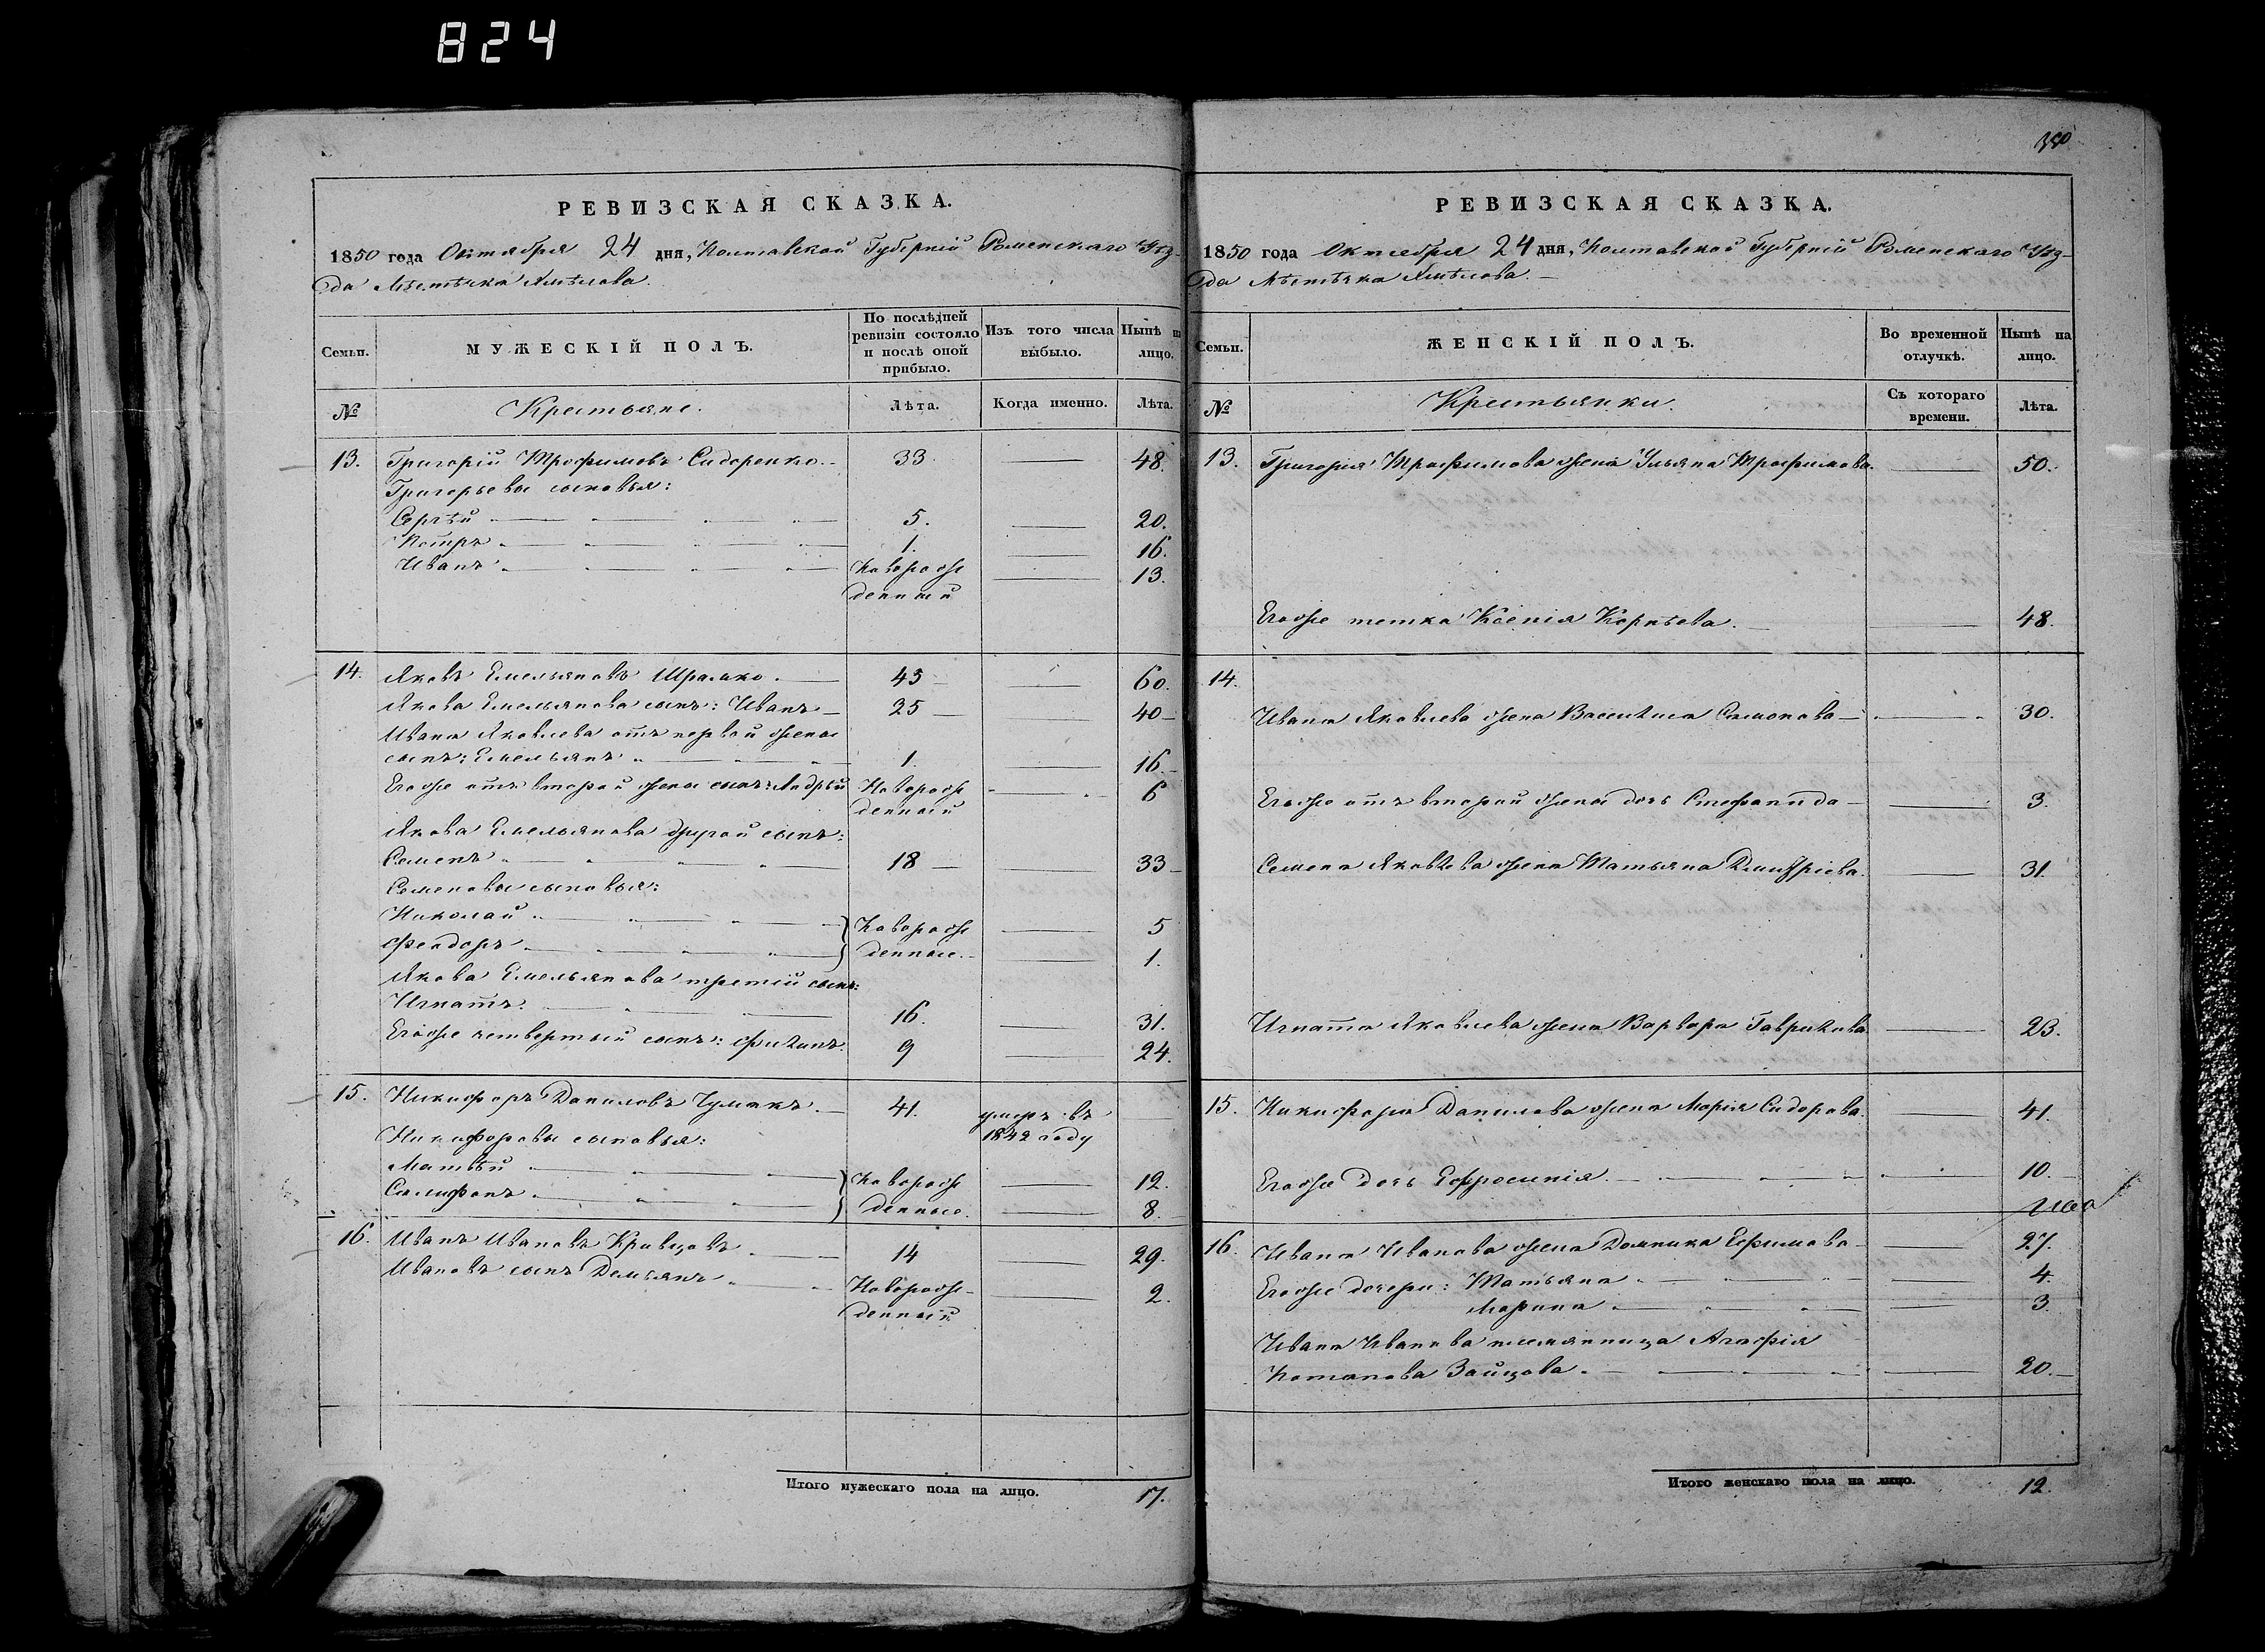 824
РЕВИЗСКАЯ СКАЗКА.
1850 года Октября 24 дня, Полтавской Губерніи Роменскаго Уѣз-
да Мѣстѣчка Хмѣлова.
Семьи.
МУЖЕСКІЙ ПОЛЪ.
По послѣдней
ревизіи состояло
и послѣ оной
прибыло.
Изъ того числа
выбыло.
Нынѣ на
лицо.
№
Крестьяне.
Лѣта.
Когда именно.
Лѣта.
13. Григорій Трофимовъ Сидоренко 33 48.
Григорьевы сыновья:
Сергѣй 5. 20.
Петръ 1. 16.
Иванъ Новорож 13.
денный
14. Яковъ Емельяновъ 45 60.
Якова Емельянова сынъ: Иванъ 25 40
Ивана Яковлева отъ первой жены
сынъ: Емельянъ 1. 16.
Егоже отъ второй жены сынъ: Андрѣй Новорож 6
денный
Якова Емельянова другой сынъ:
Семенъ 18 33
Семеновы сыновья:
Николай Новорож 5
Феодоръ денные. 1.
Якова Емельянова третій сынъ:
Игнатъ. 16. 31.
Егоже четвертый сынъ: Филипъ. 9 24.
15. Никифоръ Даниловъ Чумакъ 41. умеръ въ
1842 году
Никифоровы сыновья:
Матвѣй Новорож 12.
Селифонъ денные. 8.
16. Иванъ Ивановъ Кравцовъ 14 29.
Ивановъ сынъ Демьянъ Новорож- 2.
денный
Итого мужескаго пола на лицо. 17.
РЕВИЗСКАЯ СКАЗКА.
1850 года Октября 24 дня, Полтавской Губерніи Роменскаго Уѣз-
да Мѣстѣчка Хмѣлова.
Семьи.
ЖЕНСКІЙ ПОЛЪ.
Во временной
отлучкѣ.
Нынѣ на
лицо.
№
Крестьянки.
Съ котораго
времени.
Лѣта.
13. Григорія Трофимова жена Ульяна Трофимова. 50.
Егоже тетка Ксенія Корнѣева. 48.
14.
Ивана Яковлева жена Василиса Симонова 30.
Егоже отъ второй жены дочь Стефанида 3.
Семена Яковлева жена Татьяна Дмитріева. 31.
Игната Яковлева жена Варвара Гаврилова 23.
15. Никифора Данилова жена Марія Сидорова. 41.
Егоже дочь Ефросинія. 10.
16. Ивана Иванова жена Домника Ефимова 27.
Егоже дочери: Татьяна 4
Марина 3.
Ивана Иванова племянница Агафія
Потапова Зайцова. 20.
Итого женскаго пола на лицо. 12.